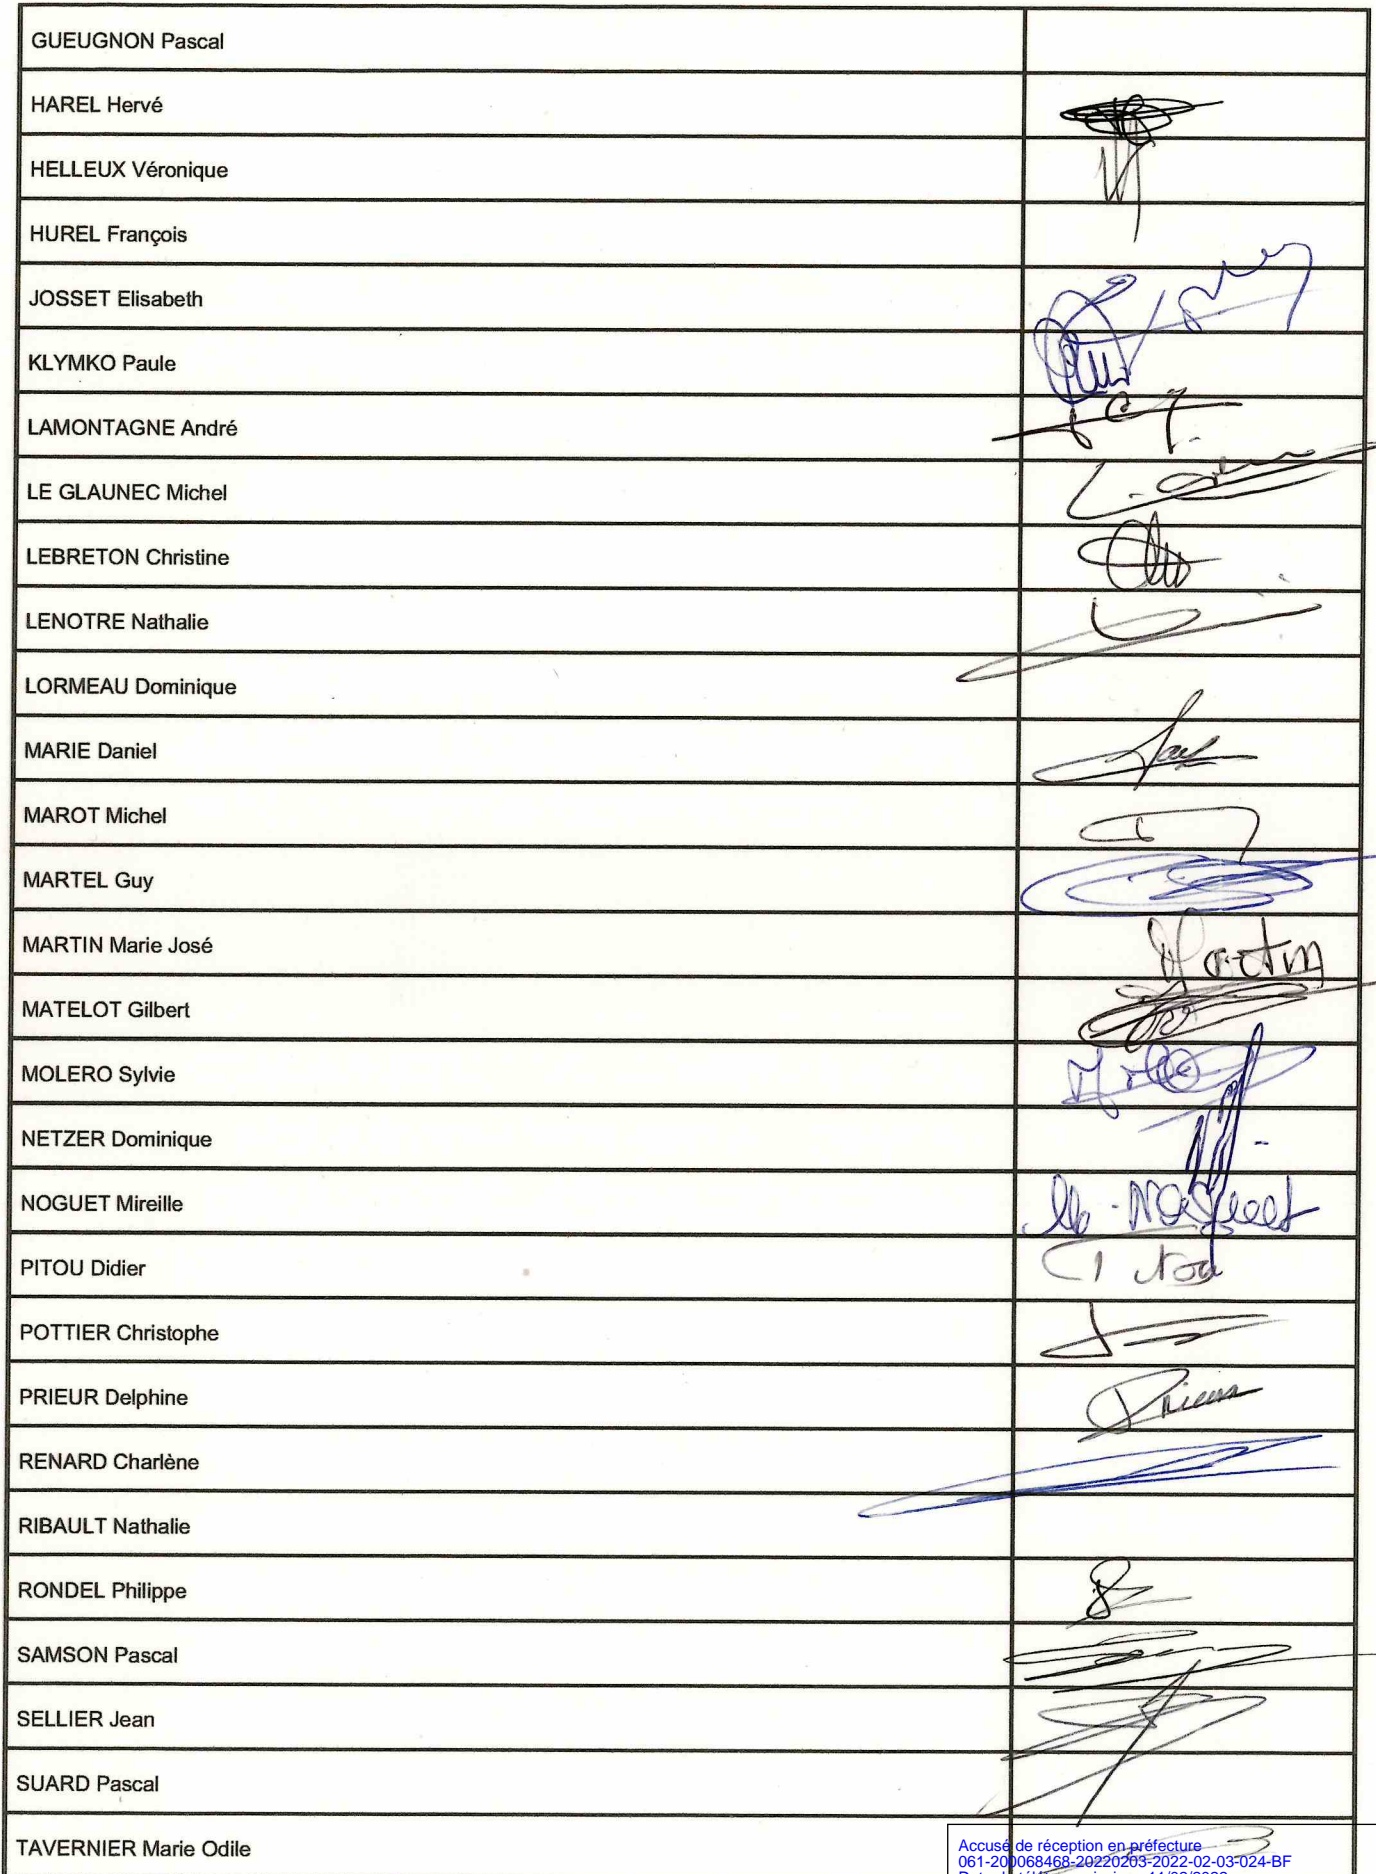 GUEUGNON Pascal
HAREL Hervé
HELLEUX Véronique
HUREL François
JOSSET Elisabeth
KLYMKO Paule
LAMONTAGNE André
LE GLAUNEC Michel
LEBRETON Christine
LENOTRE Nathalie
LORMEAU Dominique
MARIE Daniel
MAROT Michel
MARTEL Guy
MARTIN Marie José
Martin
MATELOT Gilbert
MOLERO Sylvie
NETZER Dominique
NOGUET Mireille
M. Noguet
PITOU Didier
Pitou
POTTIER Christophe
PRIEUR Delphine
Prieur
RENARD Charlène
RIBAULT Nathalie
RONDEL Philippe
SAMSON Pascal
SELLIER Jean
SUARD Pascal
TAVERNIER Marie Odile
Accusé de réception en préfecture
061-200068468-20220203-2022-02-03-024-BF